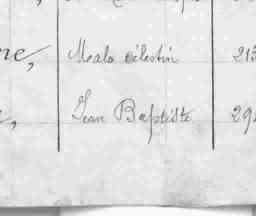 ne, Malo Célestin 213
Jean Baptiste 29